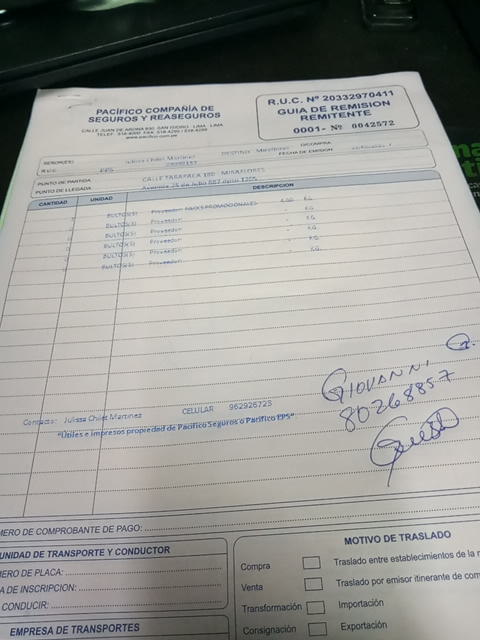 PACÍFICO COMPAÑÍA DE
SEGUROS Y REASEGUROS
CALLE JUAN DE ARONA 830 SAN ISIDRO - LIMA - LIMA
TELEF: 518-4000 FAX: 518-4295 / 518-4299
www.pacifico.com.pe
R.U.C. Nº 20332970411
GUIA DE REMISION
REMITENTE
0001- Nº 0042572
SEÑOR(ES): Julissa Chilet Martinez DESTINO: Miraflores
R.U.C. FECHA DE EMISION
PUNTO DE PARTIDA CALLE TARAPACA 180 MIRAFLORES
PUNTO DE LLEGADA Avenida 28 de Julio 887 dpto 1205
CANTIDAD UNIDAD DESCRIPCION
BULTOS(S) Proveedor: PACKS PROMOCIONALES 4.00 KG.
BULTOS(S) Proveedor: - KG.
BULTOS(S) Proveedor: - KG.
BULTOS(S) Proveedor: - KG.
BULTOS(S) Proveedor: - KG.
BULTOS(S) Proveedor: - KG.
GIOVANNI G.
80268857
Contacto: Julissa Chilet Martinez CELULAR 962926723
"Utiles e impresos propiedad de Pacifico Seguros o Pacifico EPS"
MERO DE COMPROBANTE DE PAGO:
UNIDAD DE TRANSPORTE Y CONDUCTOR
MERO DE PLACA:
A DE INSCRIPCION:
CONDUCIR:
EMPRESA DE TRANSPORTES
MOTIVO DE TRASLADO
Compra Traslado entre establecimientos de la
Venta Traslado por emisor itinerante de com
Transformación Importación
Consignación Exportación